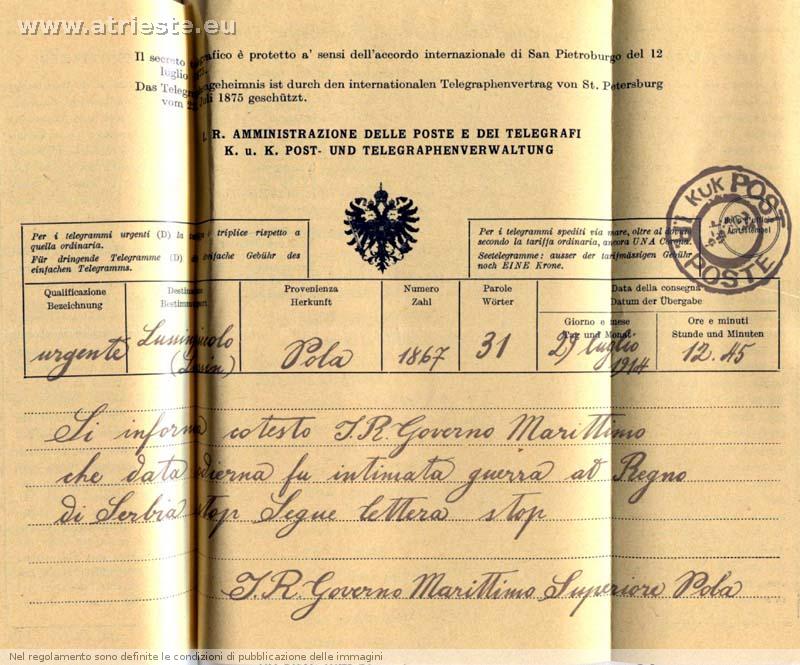 www.atrieste.eu
Il secreto telegrafico è protetto a' sensi dell'accordo internazionale di San Pietroburgo del 12
luglio
Das Telegraphengeheimnis ist durch den internationalen Telegraphenvertrag von St. Petersburg
vom Juli 1875 geschützt.
I. R. AMMINISTRAZIONE DELLE POSTE E DEI TELEGRAFI
K. u. K. POST- UND TELEGRAPHENVERWALTUNG
KuK POST
POSTE
Bollo d'ufficio
Amtsstempel
Per i telegrammi urgenti (D) la triplice rispetto a
quella ordinaria.
Für dringende Telegramme (D) fache Gebühr des
einfachen Telegramms.
Per i telegrammi spediti via mare, oltre al
secondo la tariffa ordinaria, ancora UNA Corona.
Seetelegramme: ausser der tarifmässigen Gebühr
noch EINE Krone.
Qualificazione
Bezeichnung
Destinazione
Bestimmungsort
Provenienza
Herkunft
Numero
Zahl
Parole
Wörter
Data della consegna
Datum der Übergabe
Giorno e mese
Tag und Monat
Ore e minuti
Stunde und Minuten
urgente
Lussinpicolo
(Lussin)
Pola
1867
31
luglio
1914
12.45
Si informa cotesto I.R. Governo Marittimo
che data odierna fu intimata guerra al Regno
di Serbia stop Segue lettera stop
I.R. Governo Marittimo Superiore Pola
Nel regolamento sono definite le condizioni di pubblicazione delle immagini